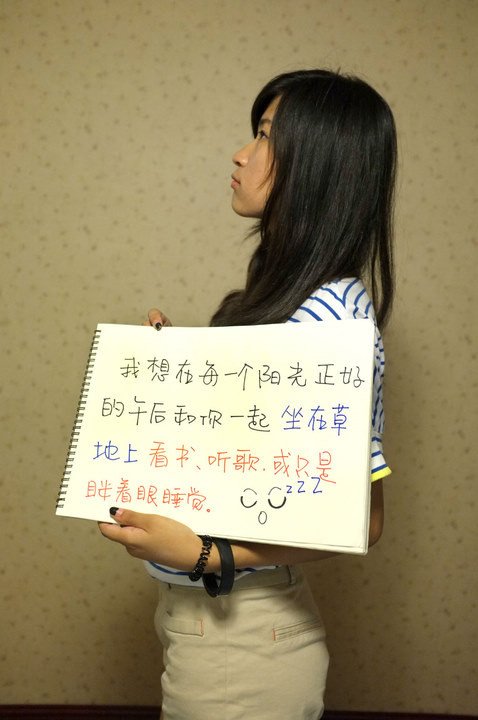 我想在每一个阳光正好
的午后和你一起 坐在草
地上 看书、听歌.或只是
眯着眼睡觉。 zZZ